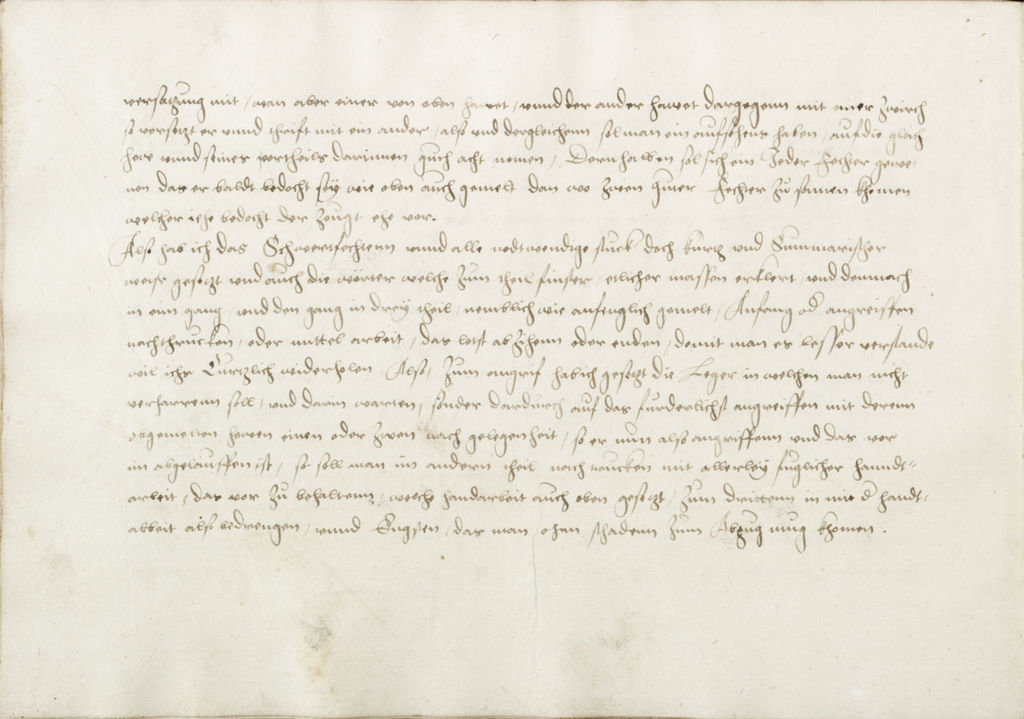 versatzung mit, wan aber einer von oben hawet, vnnd der ander hawet dargegenn mit einer zwirch
so versetzt er vnnd thrift mit ein ander, also vnd dergleichenn sol man ein aufsehens haben, auf die gleich
hew vnnd seines vortheils darinnen guth acht nemen, Dernhalben sol sich ein Jeder Fechter gewe-
nen das er baldt bedocht sey wie oben auch gemelt dan wo zween guter Fechter zu samen khomen
welcher ehe bedocht der zeugt ehe vor.
Also hab ich das Schwertfechtenn vnnd alle nodtwendige stuck doch kurtz vnd Summarischer
weise gesetzt vnd auch die wörter welche zum theil finster, etlicher massen erklert, vnd dennach
in ein gang, vnd den gang in drey theil, nemblich wie anfenglich gemelt, Anfang od angreiffen
nachthrucken, oder mittel arbeit, das letst abziehenn oder enden, damit man es besser verstande
wil ichs Kurtzlich widerholen Also, zum angrif hab ich gesetzt die Leger in welchen man nicht
verharrenn soll, vnd darin warten, sonder dardurch auf das furderlichst angreiffen mit derenn
obgemelten hewen einen oder zwen nach gelegenheit, so er nun also angriffenn vnd das vor
im abgelauffen ist, so soll man im andern theil nachtrucken mit allerley fuglicher handt-
arbeit, das vor zu behaltenn, welche handarbeit auch oben gesetzt, zum drittenn in mit d handt-
arbeit also bedrengen, vnnd Engsten, das man ohnn schadenn zum Abzug mug khomen.